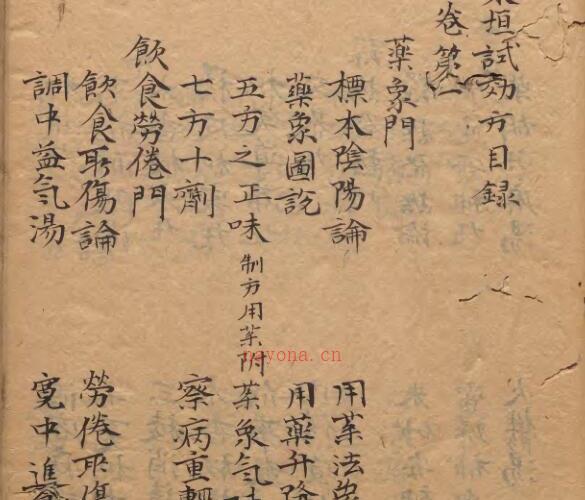 垣試効方目録
卷第一
藥象門
標本陰陽論
用藥法象
藥象圖説
用藥升降
五方之正味 制方用藥附
藥象氣味
七方十劑
察病重輕
飲食勞倦門
飲食所傷論
勞倦所傷
調中益氣湯
寛中進食
nayona.cn